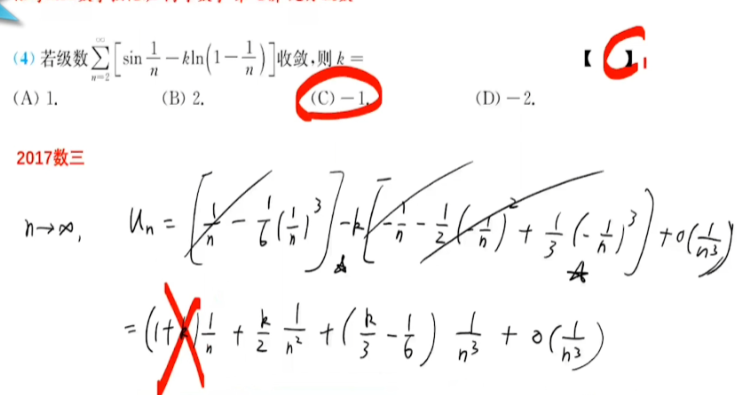 (4) 若级数∑_{n=2}^{∞}[sin 1/n − kln(1 − 1/n)]收敛,则 k = 【 C 】
(A) 1. (B) 2. (C) −1. (D) −2.
2017数三
n→∞, Un = [1/n − 1/6(1/n)³] − k[−1/n − 1/2(−1/n)² + 1/3(−1/n)³] + o(1/n³)
= (1+k)1/n + k/2 1/n² + (k/3 − 1/6) 1/n³ + o(1/n³)